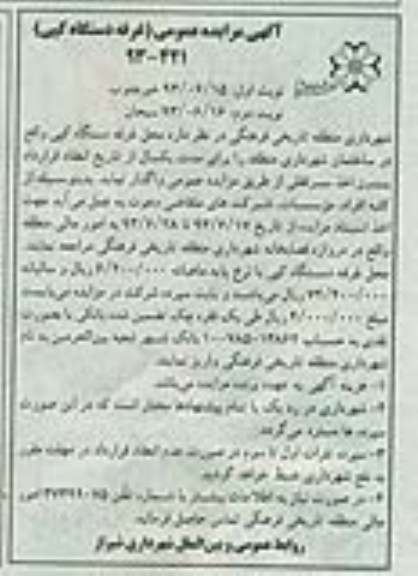 آگهی مزایده عمومی (غرفه دستگاه کپی)
۹۳-۴۲۱
نوبت اول: خبر جنوب
نوبت دوم: سبحان
شهرداری منطقه تاریخی فرهنگی در نظر دارد محل غرفه دستگاه کپی واقع
در ساختمان شهرداری منطقه را برای مدت یکسال از تاریخ انعقاد قرارداد
بدون اخذ سرقفلی از طریق مزایده عمومی واگذار نماید. بدینوسیله از
کلیه افراد، موسسات، شرکت های متقاضی دعوت به عمل می آید جهت
اخذ اسناد مزایده از تاریخ تا به امور مالی منطقه
واقع در دروازه شهرداری منطقه تاریخی فرهنگی مراجعه نمایند.
محل غرفه دستگاه کپی با نرخ پایه ماهیانه ریال و سالیانه
ریال می باشد و بابت سپرده شرکت در مزایده می بایست
مبلغ ریال طی یک فقره چک تضمین شده بانکی یا بصورت
نقدی به حساب بانک شهر شعبه به نام
شهرداری منطقه تاریخی فرهنگی واریز نمایند.
۱- هزینه آگهی به عهده برنده مزایده می باشد.
۲- شهرداری در رد یک یا تمام پیشنهادها مختار است که در این صورت
سپرده ها مسترد می گردد.
۳- سپرده نفرات اول تا سوم در صورت عدم انعقاد قرارداد در مهلت مقرر
به نفع شهرداری ضبط خواهد گردید.
۴- در صورت نیاز به اطلاعات بیشتر با شماره تلفن امور
مالی منطقه تاریخی فرهنگی تماس حاصل فرمایید.
روابط عمومی و بین الملل شهرداری شیراز